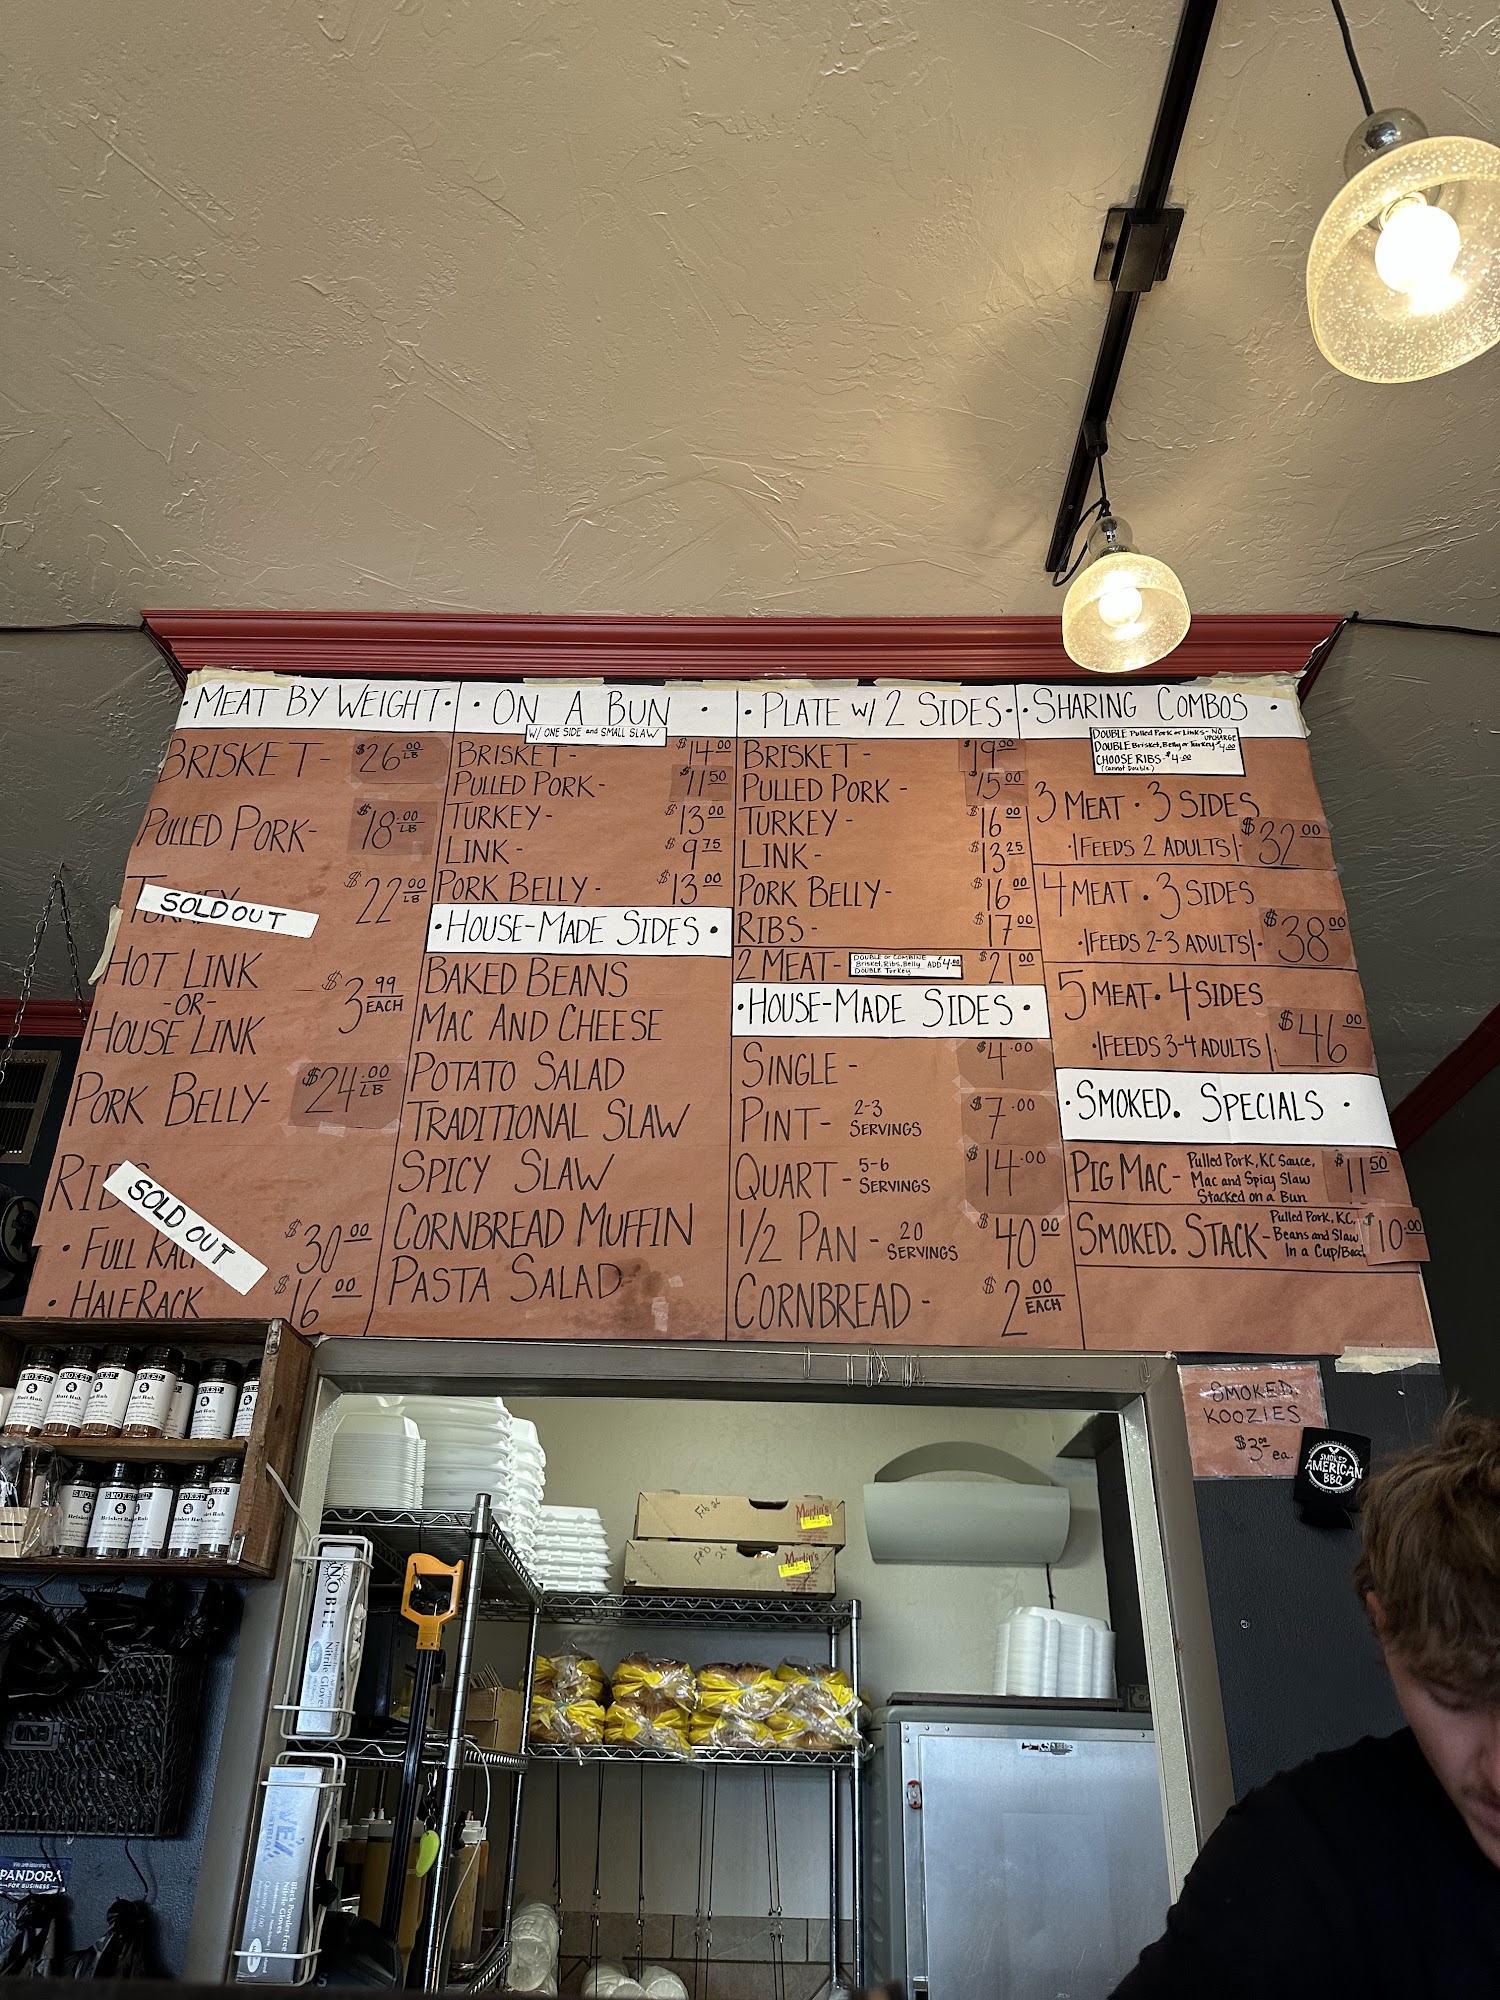 • MEAT BY WEIGHT •
BRISKET - $26.00 LB
PULLED PORK - $18.00 LB
SOLD OUT $22.00 LB
HOT LINK
-OR-
HOUSE LINK
$3.99 EACH
PORK BELLY - $24.00 LB
RIBS
SOLD OUT
• FULL RACK $30.00
• HALF RACK $16.00
• ON A BUN •
W/ ONE SIDE and SMALL SLAW
BRISKET - $14.00
PULLED PORK - $11.50
TURKEY - $13.00
LINK - $9.75
PORK BELLY - $13.00
• HOUSE-MADE SIDES •
BAKED BEANS
MAC AND CHEESE
POTATO SALAD
TRADITIONAL SLAW
SPICY SLAW
CORNBREAD MUFFIN
PASTA SALAD
• PLATE W/ 2 SIDES •
BRISKET - $19.00
PULLED PORK - $15.00
TURKEY - $16.00
LINK - $13.25
PORK BELLY - $16.00
RIBS - $17.00
2 MEAT - $21.00
DOUBLE or COMBINE
Brisket, Ribs, Belly ADD $4.00
DOUBLE Turkey
• HOUSE-MADE SIDES •
SINGLE - $4.00
PINT - 2-3 SERVINGS $7.00
QUART - 5-6 SERVINGS $14.00
1/2 PAN - 20 SERVINGS $40.00
CORNBREAD - $2.00 EACH
• SHARING COMBOS •
DOUBLE Pulled Pork or Links - NO UPCHARGE
DOUBLE Brisket, Belly or Turkey - $4.00
CHOOSE RIBS - $4.00
(Cannot Double)
3 MEAT • 3 SIDES
• |FEEDS 2 ADULTS| • $32.00
4 MEAT • 3 SIDES
• |FEEDS 2-3 ADULTS| • $38.00
5 MEAT • 4 SIDES
• |FEEDS 3-4 ADULTS| $46.00
• SMOKED. SPECIALS •
PIG MAC - Pulled Pork, KC Sauce,
Mac and Spicy Slaw
Stacked on a Bun
$11.50
SMOKED. STACK - Pulled Pork, KC,
Beans and Slaw
In a Cup/Boat
$10.00
SMOKED.
KOOZIES
$3.00 ea.
SMOKED
AMERICAN
BBQ
SMOKED.
Butt Rub
SMOKED.
Butt Rub
SMOKED.
Butt Rub
SMOKED.
Butt Rub
SMOKED.
Brisket Rub
Feb 26
Martin's
Feb 26
Martin's
NOBLE
Nitrile Gloves
Black Powder-Free
Nitrile Gloves
We are listening to
PANDORA
FOR BUSINESS